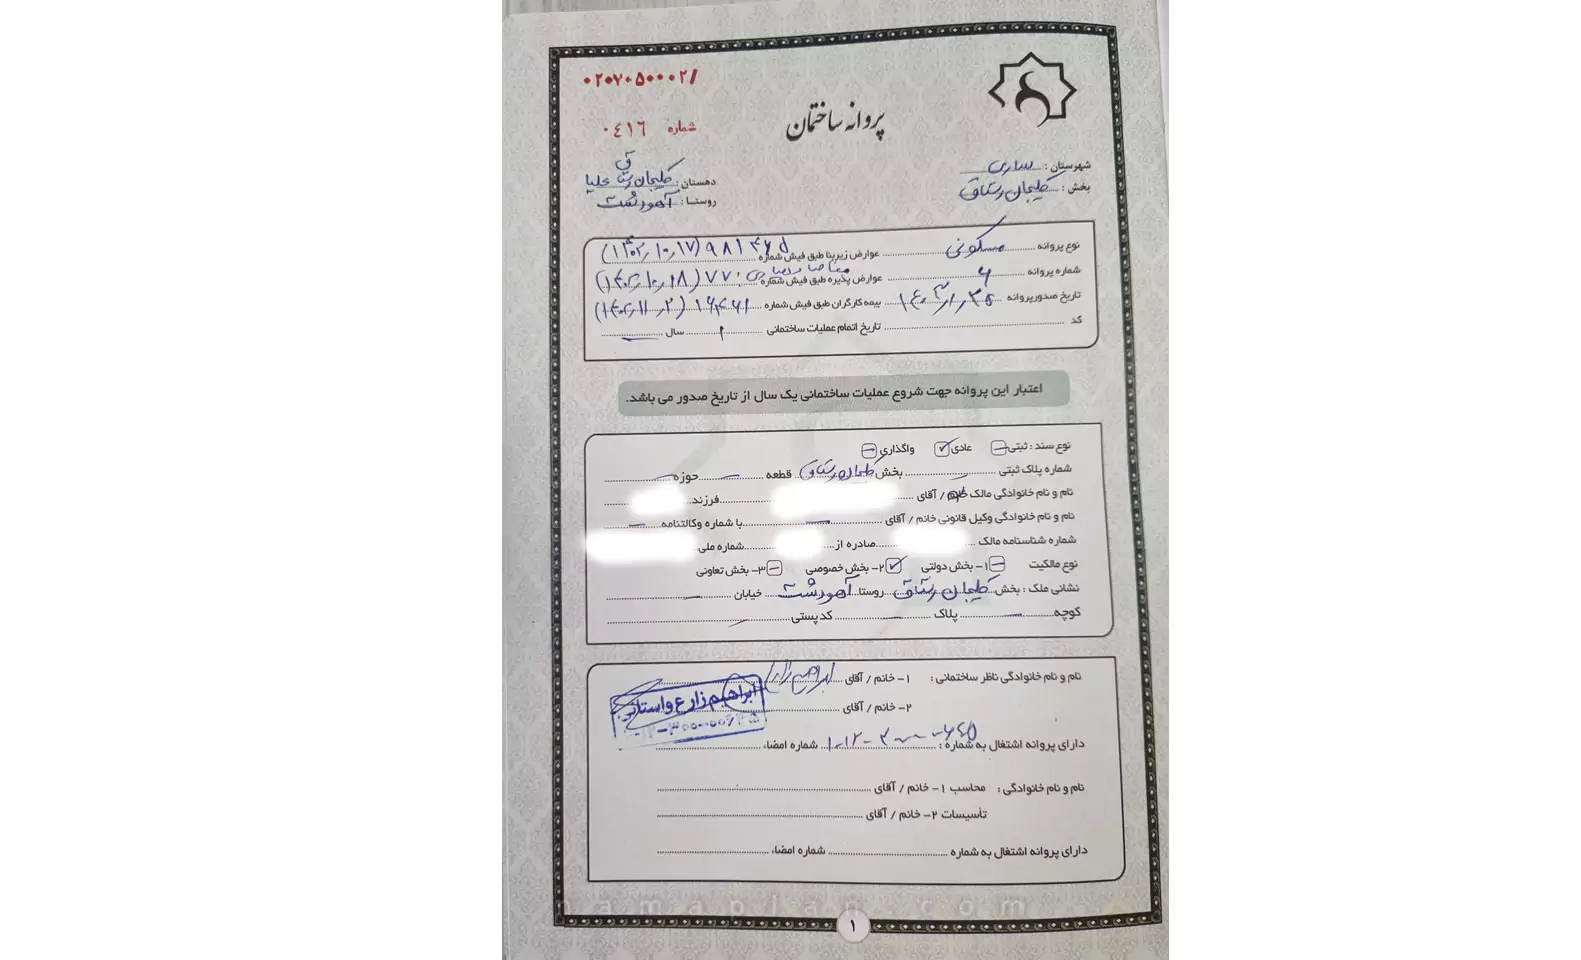 ۰۲۰۷۰۵۰۰۰۲/
پروانه ساختمان
شماره ۰٤۱٦
شهرستان : ساری
دهستان : کلیجان رستاق علیا
بخش : کلیجان رستاق
روستا : آهودشت
نوع پروانه مسکونی عوارض زیربنا طبق فیش شماره (۱۴۰۲,۱۰,۱۷)
شماره پروانه ۶ عوارض پذیره طبق فیش شماره ۷۷۰ (۱۴۰۲,۱۰,۱۸)
تاریخ صدور پروانه بیمه کارگران طبق فیش شماره (۱۴۰۲,۱۱,۲)
کد تاریخ اتمام عملیات ساختمانی ۱ سال
اعتبار این پروانه جهت شروع عملیات ساختمانی یک سال از تاریخ صدور می باشد.
نوع سند : ثبتی عادی ✓ واگذاری
شماره پلاک ثبتی بخش کلیجان رستاق قطعه حوزه
نام و نام خانوادگی مالک خانم / آقای فرزند
نام و نام خانوادگی وکیل قانونی خانم / آقای با شماره وکالتنامه
شماره شناسنامه مالک صادره از شماره ملی
نوع مالکیت ۱- بخش دولتی ۲- بخش خصوصی ✓ ۳- بخش تعاونی
نشانی ملک : بخش کلیجان رستاق روستا آهودشت خیابان
کوچه پلاک کدپستی
نام و نام خانوادگی ناظر ساختمانی : ۱- خانم / آقای ابراهیم زارع
ابراهیم زارع واستانی
۲- خانم / آقای
دارای پروانه اشتغال به شماره : شماره امضاء
نام و نام خانوادگی : محاسب ۱- خانم / آقای
تأسیسات ۲- خانم / آقای
دارای پروانه اشتغال به شماره شماره امضاء
namaplan.com
۱